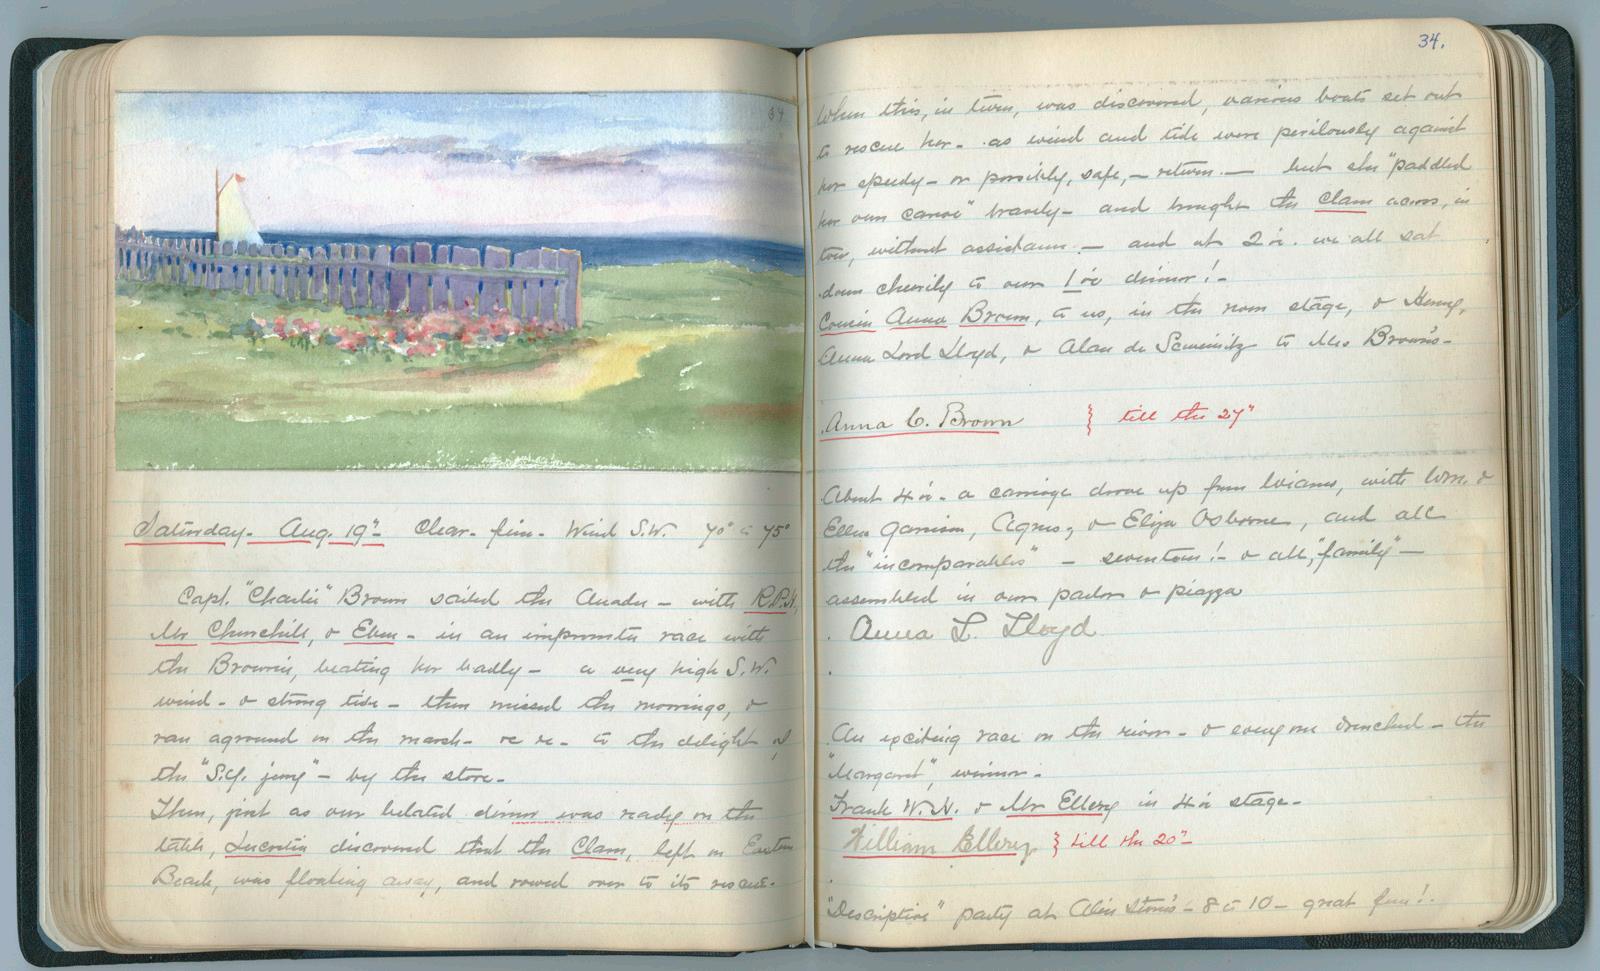 34
Saturday. Aug. 19" Clear. fine. Wind S.W. 70° to 75°
Capt. "Charlie" Brown sailed the Anadu — with R.P.H,
Mr Churchill, & Eben - in an impromtu race with
the Brownie, beating her badly — a very high S.W.
wind - & strong tide - then missed the moorings, &
ran aground on the marsh - to the delight of
the "S.Y. jury" - by the store.
Then, just as our belated dinner was ready on the
table, Lucretia discovered that the Clam, left on Eastern
Beach, was floating away, and rowed over to its rescue.
34.
When this, in turn, was discovered, various boats set out
to rescue her - as wind and tide were perilously against
her speedy - or possibly, safe, - return. — but she "paddled
her own canoe" bravely - and brought the Clam across, in
tow, without assistance. — and at 2 o'c. we all sat
down cheerily to our 1 o'c dinner! -
Cousin Anna Brown, to us, in the noon stage, & Henry,
Anna Lord Lloyd, & Alan de Schweinitz to Mrs Brown's -
Anna C. Brown } till the 27"
About 4 o'c - a carriage drove up from Wianno, with Wm. &
Ellen Garrison, Agnes, & Eliza Osborne, and all
the "incomparables" — seventeen! - & all, "family" —
assembled in our parlor & piazza
Anna L. Lloyd
An exciting race on the river - & everyone drenched - the
"Margaret", winner -
Frank W. H. & Mr Ellery in 4 o'c stage -
William Ellery } till the 20"
"Descriptive" party at Alice Stone's - 8 to 10 - great fun!